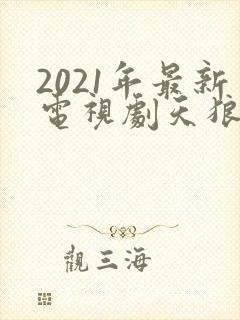 2021年最新
電視劇天狼
觀三海